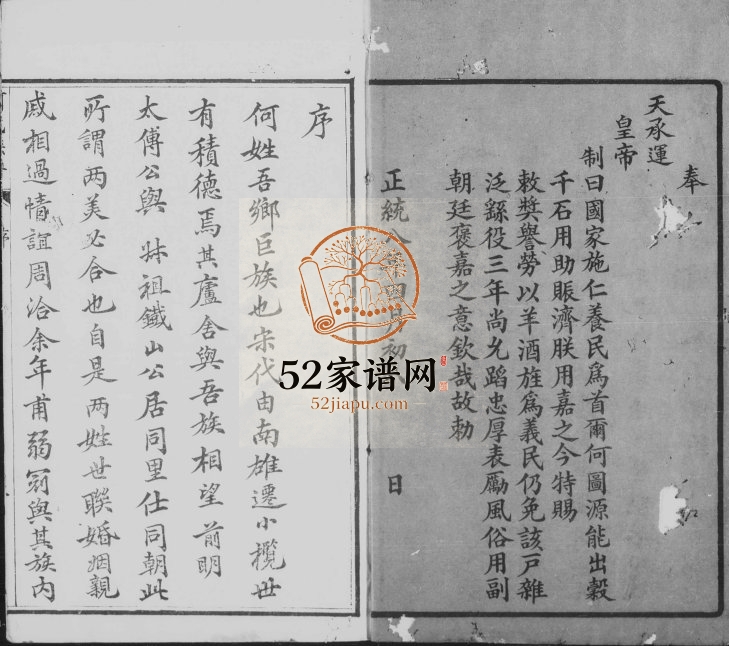 奉
天承運
皇帝
制曰國家施仁養民爲首爾何圖源能出穀
千石用助賑濟朕用嘉之今特賜
敕奬譽勞以羊酒旌爲義民仍免該戸雜
泛繇役三年尚允蹈忠厚表勵風俗用副
朝廷褒嘉之意欽哉故勅
正統八年四月初 日
序
何姓吾鄉巨族也宋代由南雄遷小欖世
有積德焉其廬舍與吾族相望前明
太傅公與 叔祖鐵山公居同里仕同朝此
所謂两美必合也自是两姓世聯婚姻親
戚相過情誼周洽余年甫弱冠與其族内
序
52家谱网
52jiapu.com